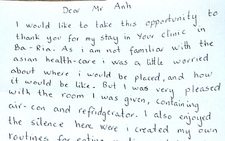 Dear Mr Anh
I would like to take this opportunity to
thank you for my stay in Your clinic in
Ba-Ria. As i am not familiar with the
asian health-care i was a little worried
about where i would be placed, and how
it would be like. But I was very pleased
with the room I was given, containing
air-con and refridgerator. I also enjoyed
the silence here were i created my own
routines for eating